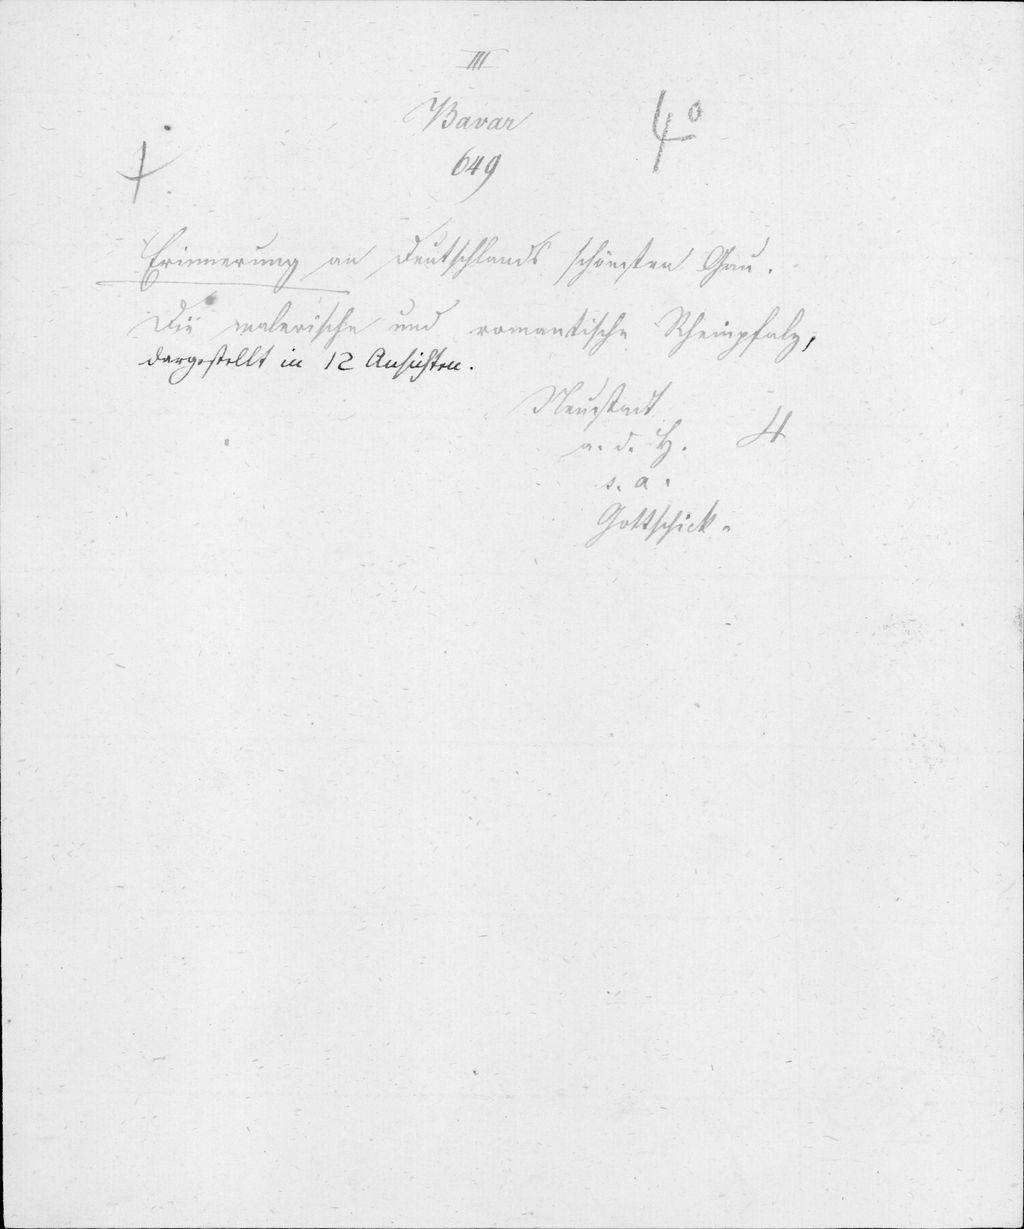 III
Bavar
4°
649
Erinnerung an Deutschlands schönsten Gau.
Die malerische und romantische Rheinpfalz,
dargestellt in 12 Ansichten.
Neustadt
a. d. H. 4
s. a.
Gottschick.